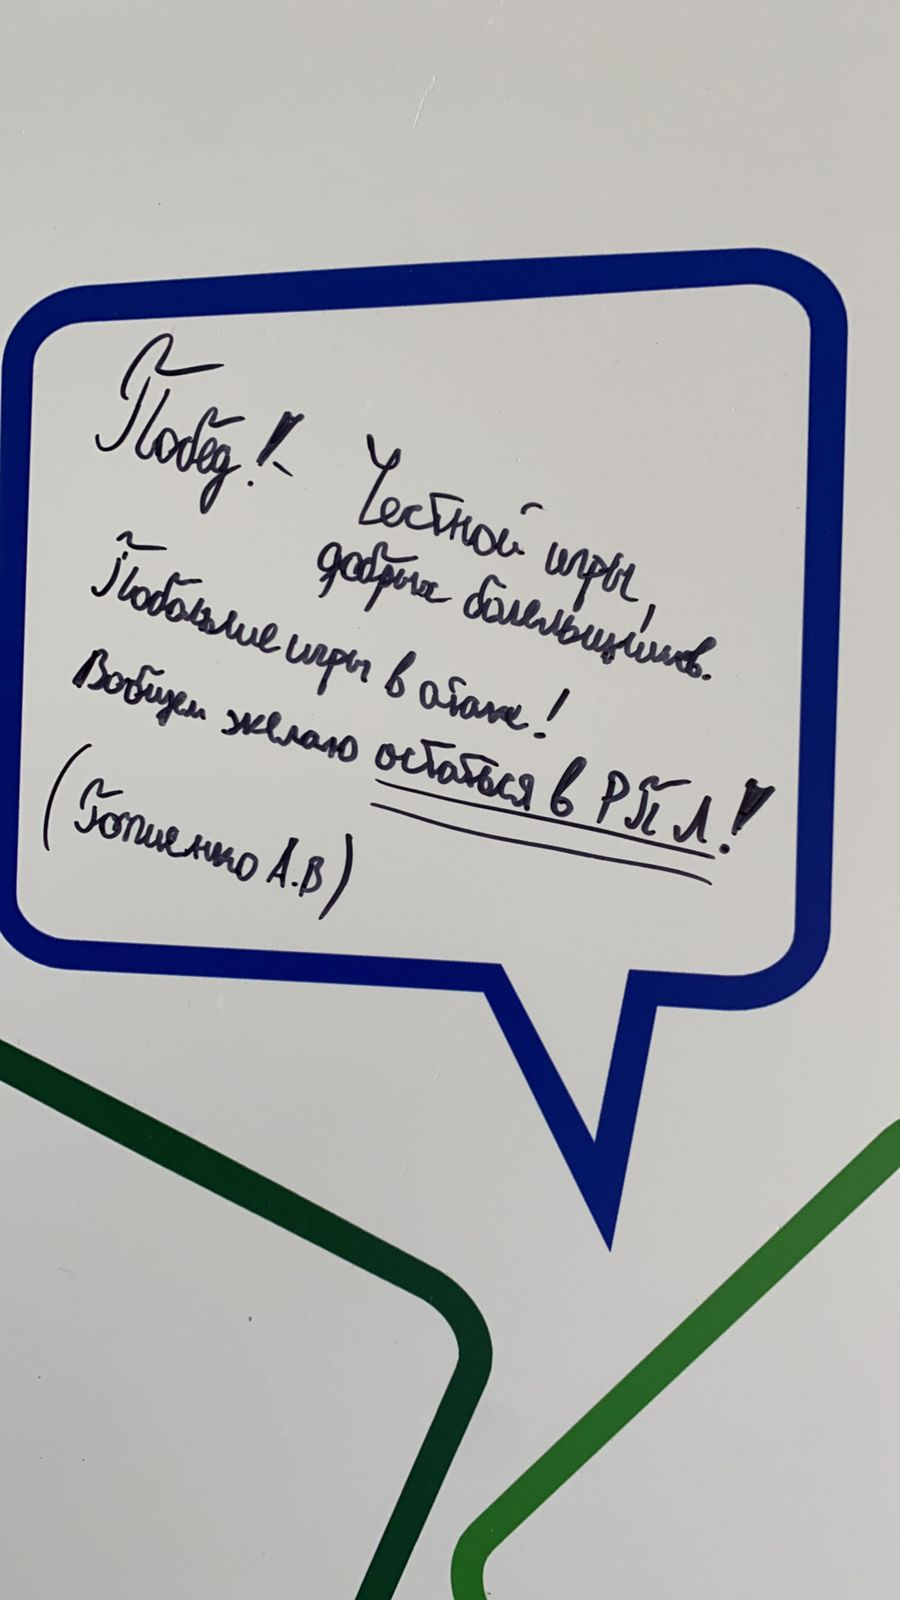 Побед! Честной игры,
добрых болельщиков.
Побольше игры в атаке!
Вобщем желаю остаться в РПЛ!
А.В)